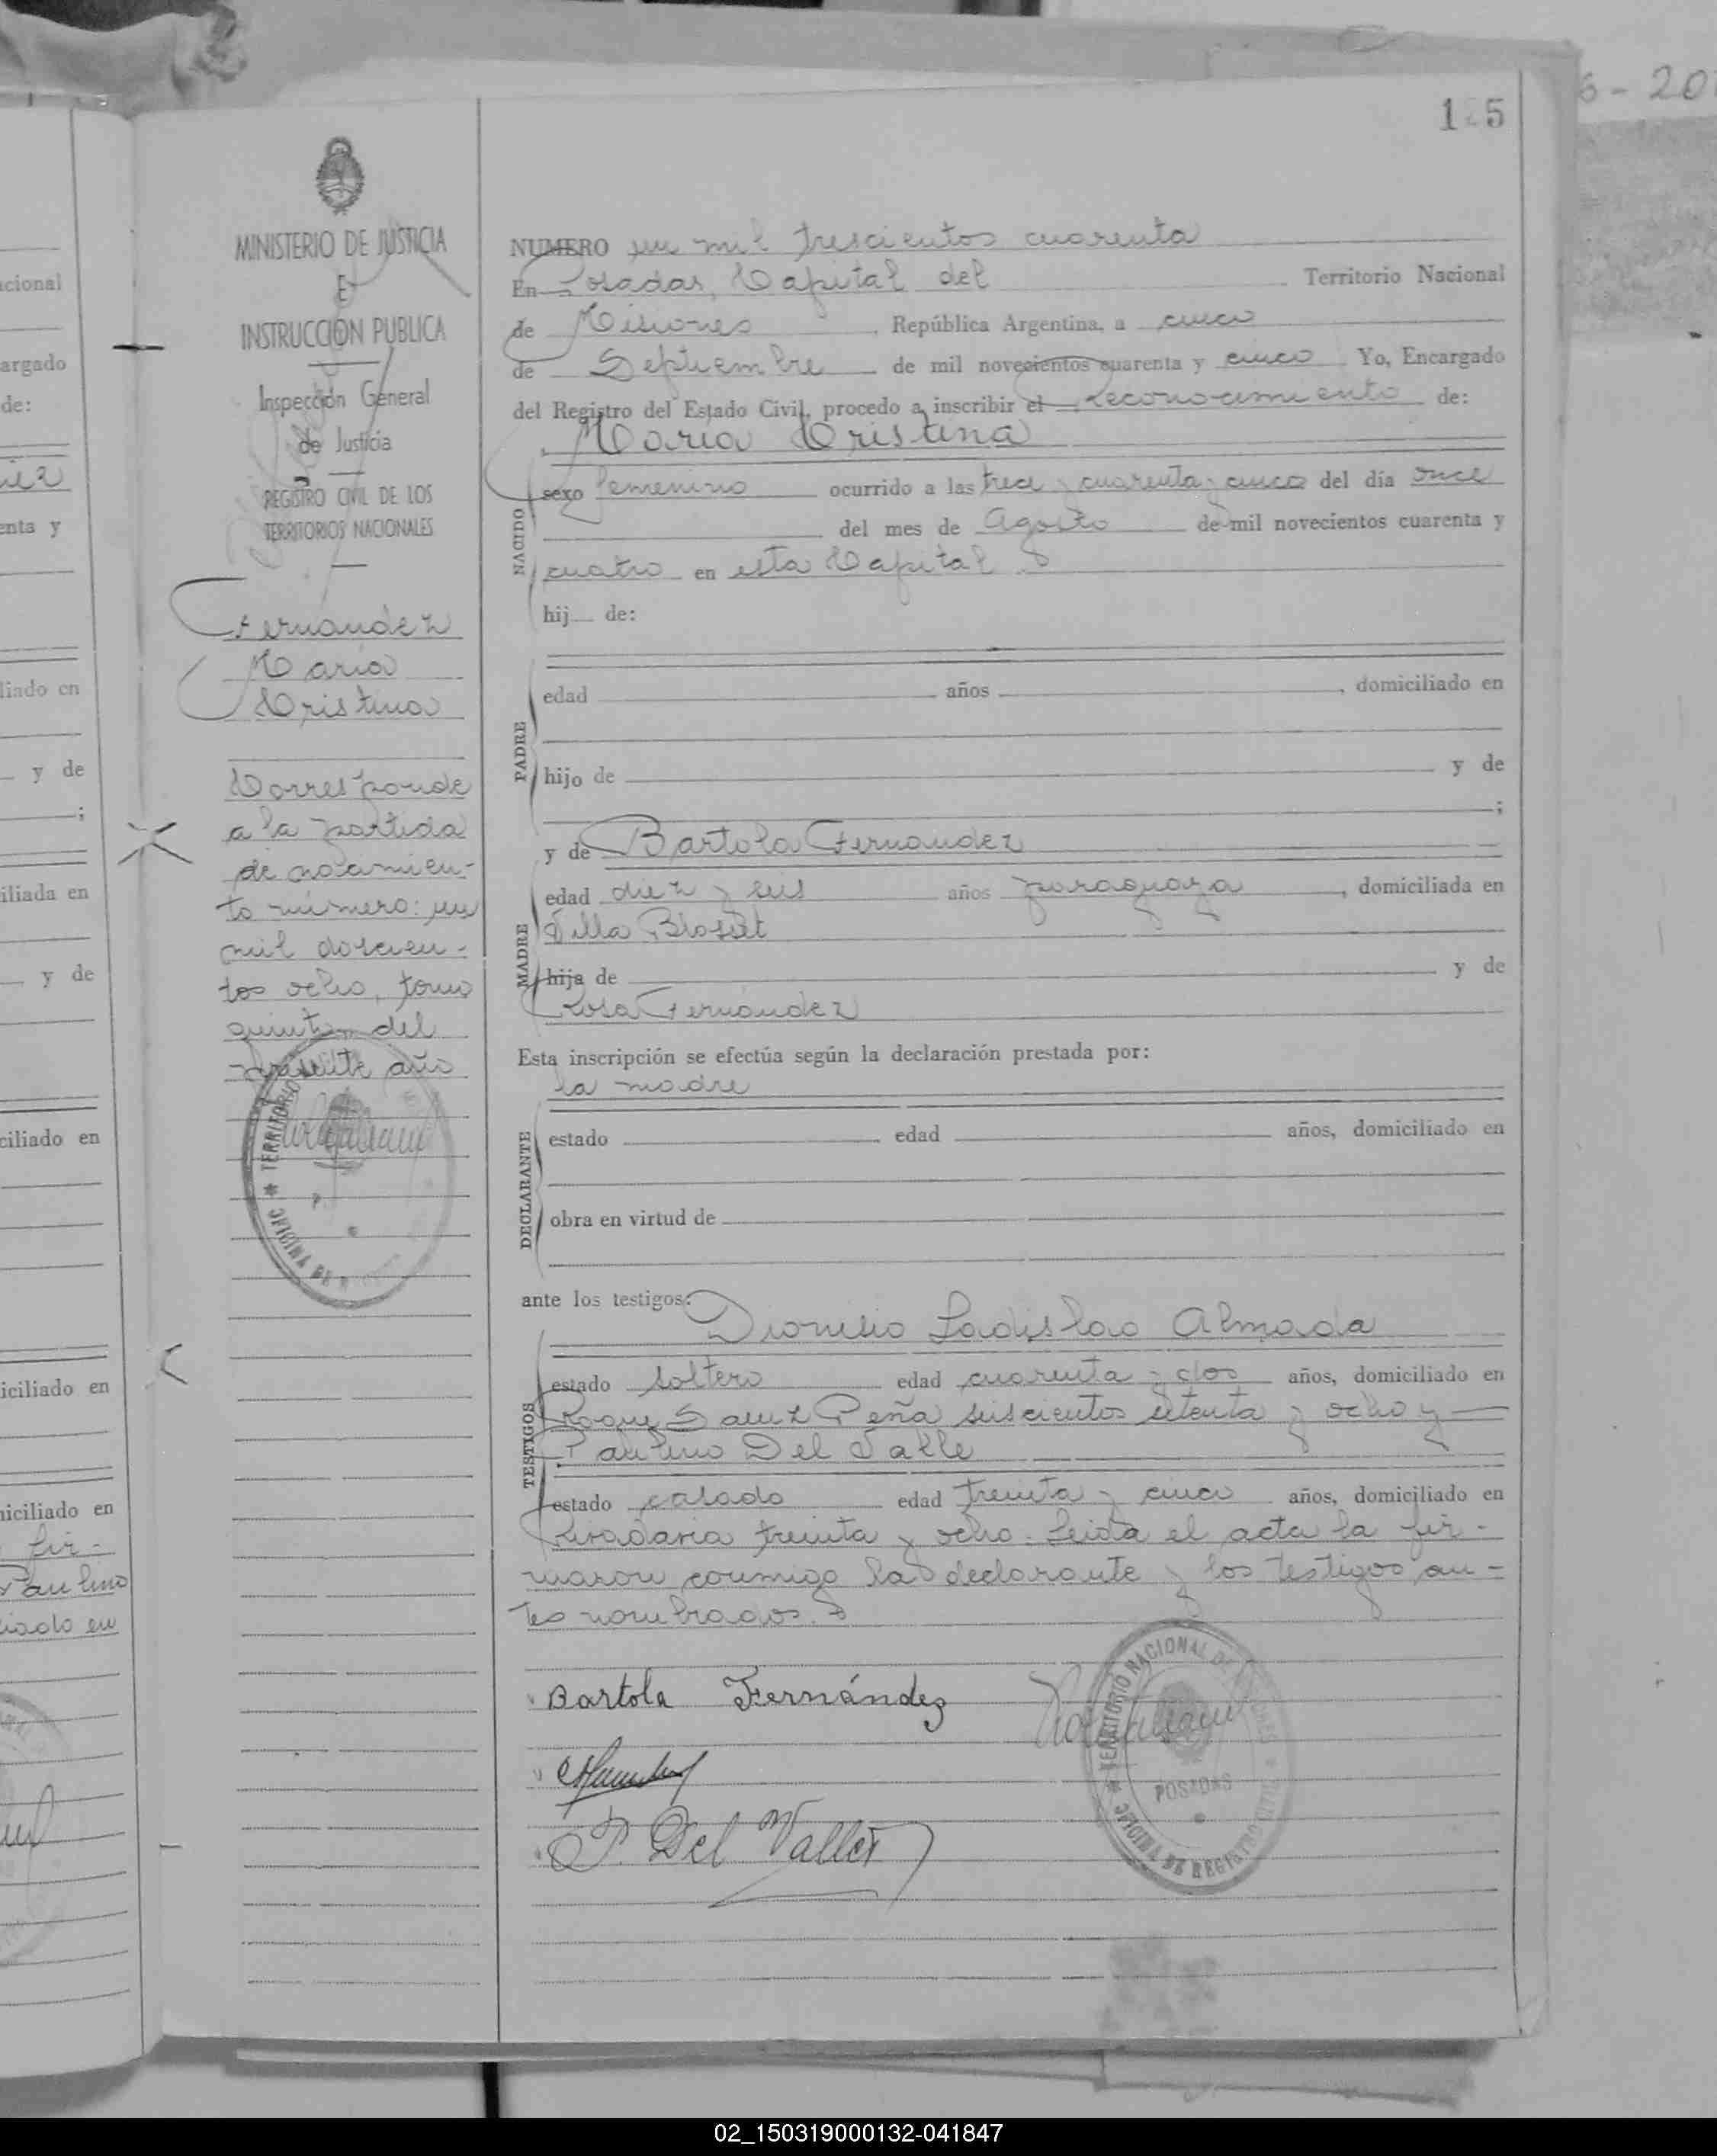 6-20
1 5
MINISTERIO DE JUSTICIA
E
INSTRUCCION PUBLICA
Inspección General
de Justicia
REGISTRO CIVIL DE LOS
TERRITORIOS NACIONALES
Fernandez
Maria
Cristina
Corresponde
a la partida
de nacimien-
to número: un
mil doscien-
tos ocho, tomo
quinto del
presente año
NUMERO un mil trescientos cuarenta
En Posadas, Capital del Territorio Nacional
de Misiones, República Argentina, a cinco
de Septiembre de mil novecientos cuarenta y cinco Yo, Encargado
del Registro del Estado Civil, procedo a inscribir el reconocimiento de:
Maria Cristina
NACIDO
sexo femenino ocurrido a las trece y cuarenta y cinco del día once
del mes de Agosto de mil novecientos cuarenta y
cuatro en esta Capital
hij de:
PADRE
edad años , domiciliado en
hijo de y de
;
y de Bartola Fernandez
MADRE
edad diez y seis años paraguaya, domiciliada en
Villa Blosset
hija de y de
Rosa Fernández
Esta inscripción se efectúa según la declaración prestada por:
la madre
DECLARANTE
estado edad años, domiciliado en
obra en virtud de
ante los testigos:
Dionisio Ladislao Almada
TESTIGOS
estado soltero edad cuarenta y dos años, domiciliado en
Roque Saenz Peña seiscientos setenta y ocho y
Paulino Del Valle
estado casado edad treinta y cinco años, domiciliado en
Rivadavia treinta y ocho. Leida el acta la fir-
maron conmigo la declarante y los testigos an-
tes nombrados.
Bartola Fernández
P. Del Valle
TERRITORIO NACIONAL DE MISIONES
POSADAS
OFICINA DE REGISTRO CIVIL
02_150319000132-041847